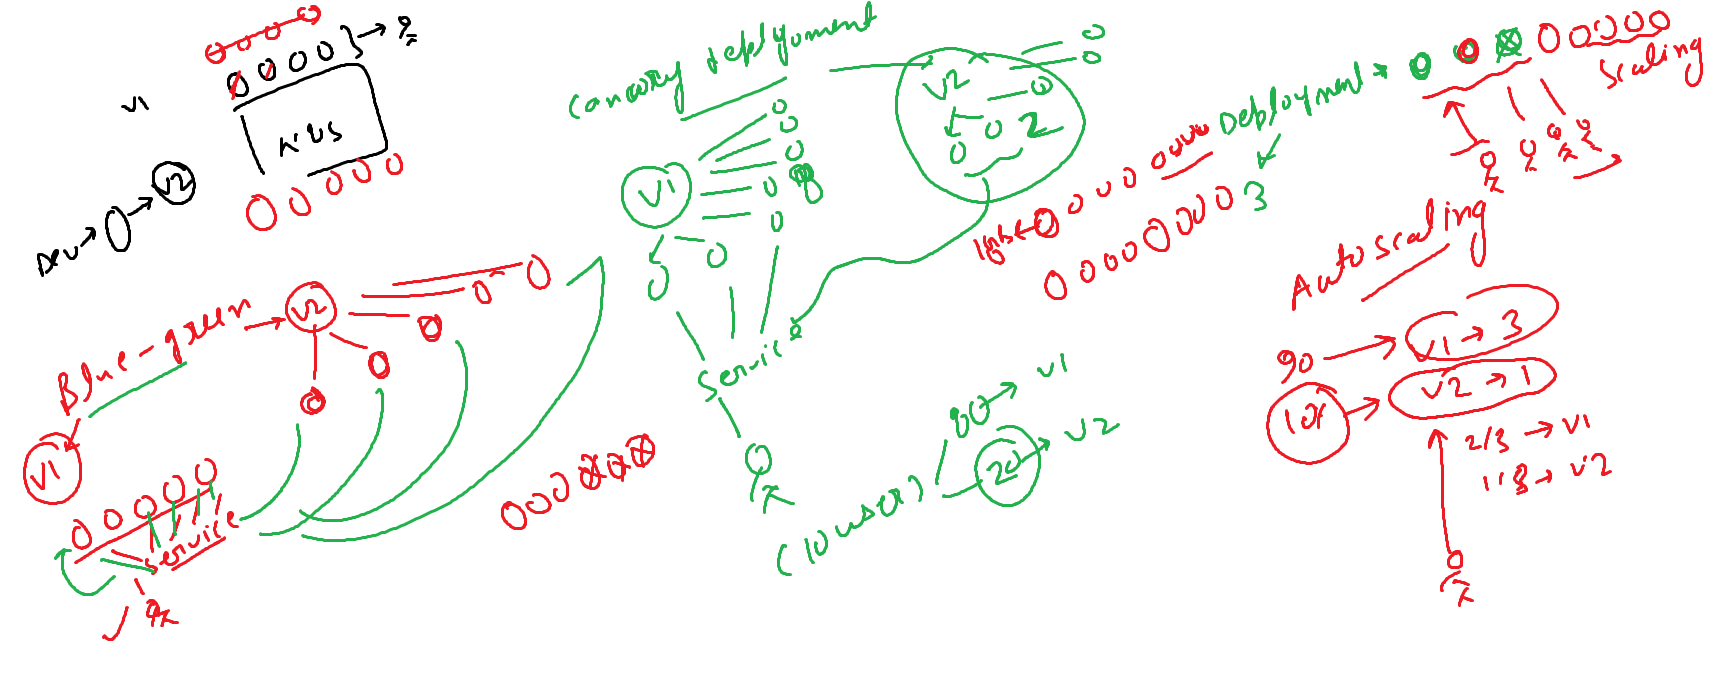 V1
K8S
Dev
V2
Blue-green
V2
V1
Service
Canary deployment
V1
V2
2
Service
(10 user)
80 → V1
20 → V2
Deployment
3
Scaling
Autoscaling
90 → V1 → 3
10% → V2 → 1
2/3 → V1
1/3 → V2